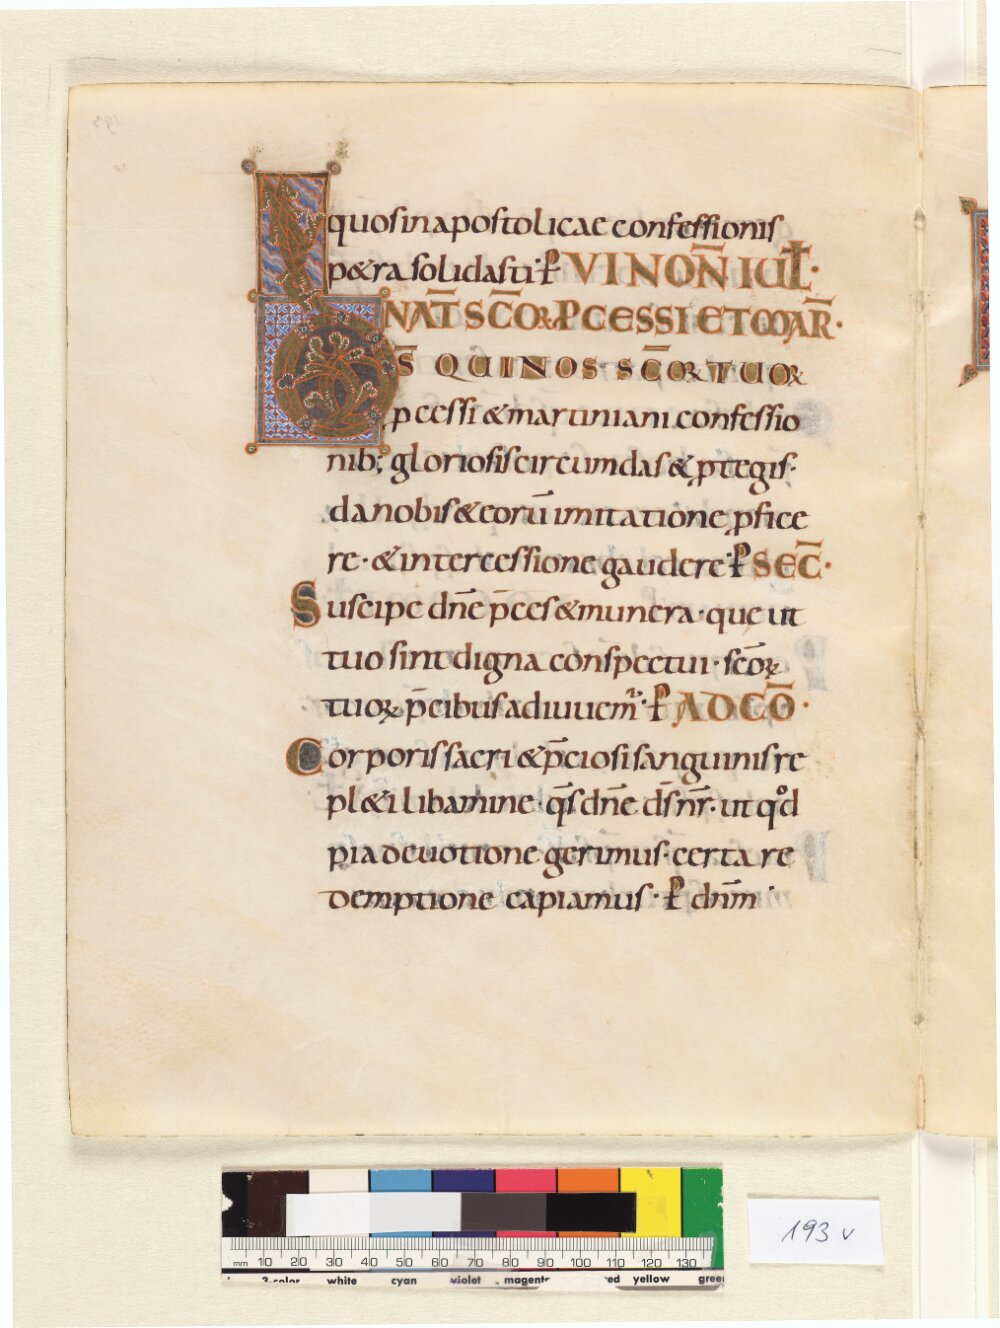 quos in apostolicae confessionis
p&ra solidasti· P VI NON̄ IUL̄·
NAT̄ SC̄OꝜ PCESSI ET MAR̄·
DS̄ QUI NOS SC̄OꝜ TUOꝜ
pcessi & martiniani confessio
nib; gloriosis circumdas & ptegis·
da nobis & eorū imitatione pfice
re· & intercessione gaudere· P SEC̄·
Suscipe dn̄e p̄ces & munera· que ut
tuo sint digna conspectui· sc̄oꝝ
tuoꝝ p̄cibus adiuuem̄· P AD CŌ·
Corporis sacri & p̄ciosi sanguinis re
pl&i libamine· q̄s dn̄e ds̄ nr̄· ut qd
pia deuotione gerimus· certa re
demptione capiamus· P dn̄m
193 v
mm 10 20 30 40 50 60 70 80 90 100 110 120 130
3-color white cyan violet magenta red yellow green